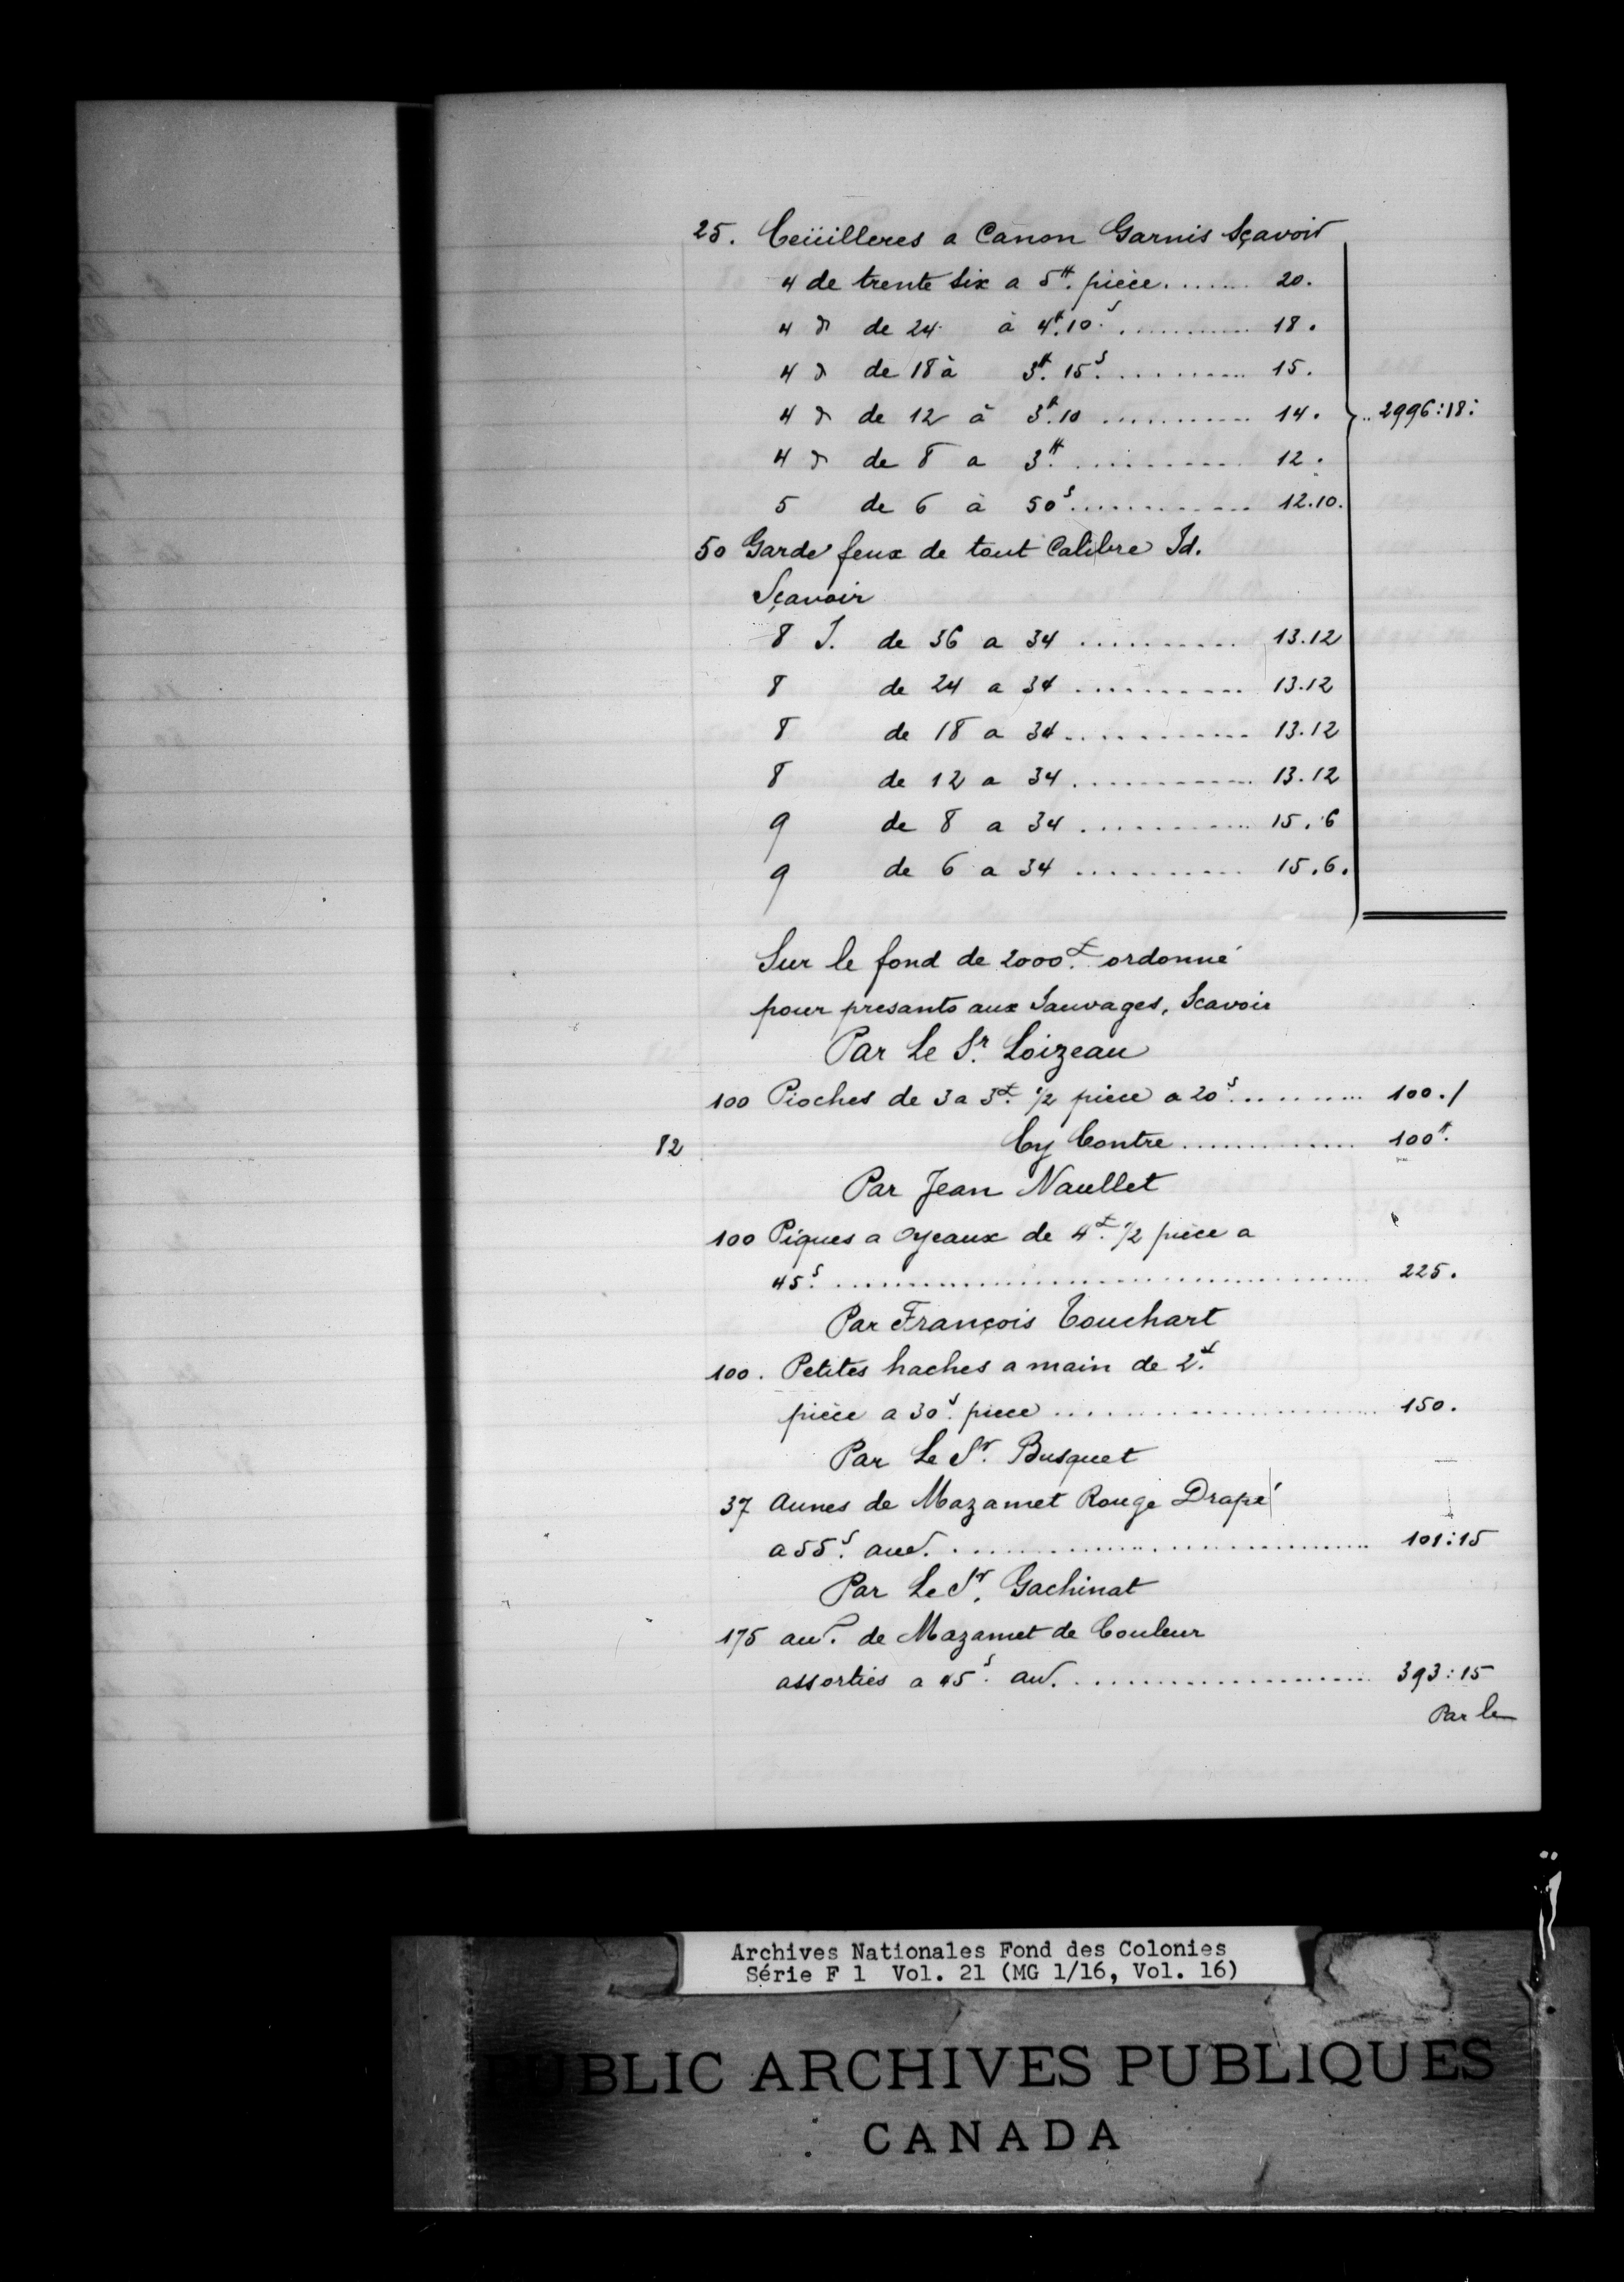 25. Ceüilleres a Canon Garnis Sçavoir
4 de trente Six a 5#. pièce....... 20.
4 d de 24 à 4#.10s. ........... 18.
4 d de 18 à 3#. 15s. .......... 15.
4 d de 12 à 3#.10 ........... 14. } .. 2996:18:
4 d de 8 a 3#. ........... 12.
5 de 6 à 50s............. 12.10.
50 Garde feux de tout Calibre Id.
Sçavoir
8 I. de 36 a 34 .......... 13.12
8 de 24 a 34 ........... 13.12
8 de 18 a 34............. 13.12
8 de 12 a 34............. 13.12
9 de 8 a 34 ........... 15.6
9 de 6 a 34 ........... 15.6.
Sur le fond de 2000#. ordonné
pour presants aux Sauvages, Scavoir
Par Le Sr. Loizeau
100 Pioches de 3 a 3#. 1/2 pièce a 20s........... 100./
82 Cy Contre............. 100#.
Par Jean Naullet
100 Piques a Oyeaux de 4#. 1/2 pièce a
45s. .................................... 225.
Par François Touchart
100. Petites haches a main de 2.#
pièce a 30s. piece ...................... 150.
Par Le Sr. Busquet
37 Aunes de Mazamet Rouge Drapé
a 55s. aue. .............................. 101:15
Par Le Sr. Gachinat
175 aue. de Mazamet de Couleur
assorties a 45s. aue. .................... 393:15
Par le
Archives Nationales Fond des Colonies
Série F 1 Vol. 21 (MG 1/16, Vol. 16)
PUBLIC ARCHIVES PUBLIQUES
CANADA